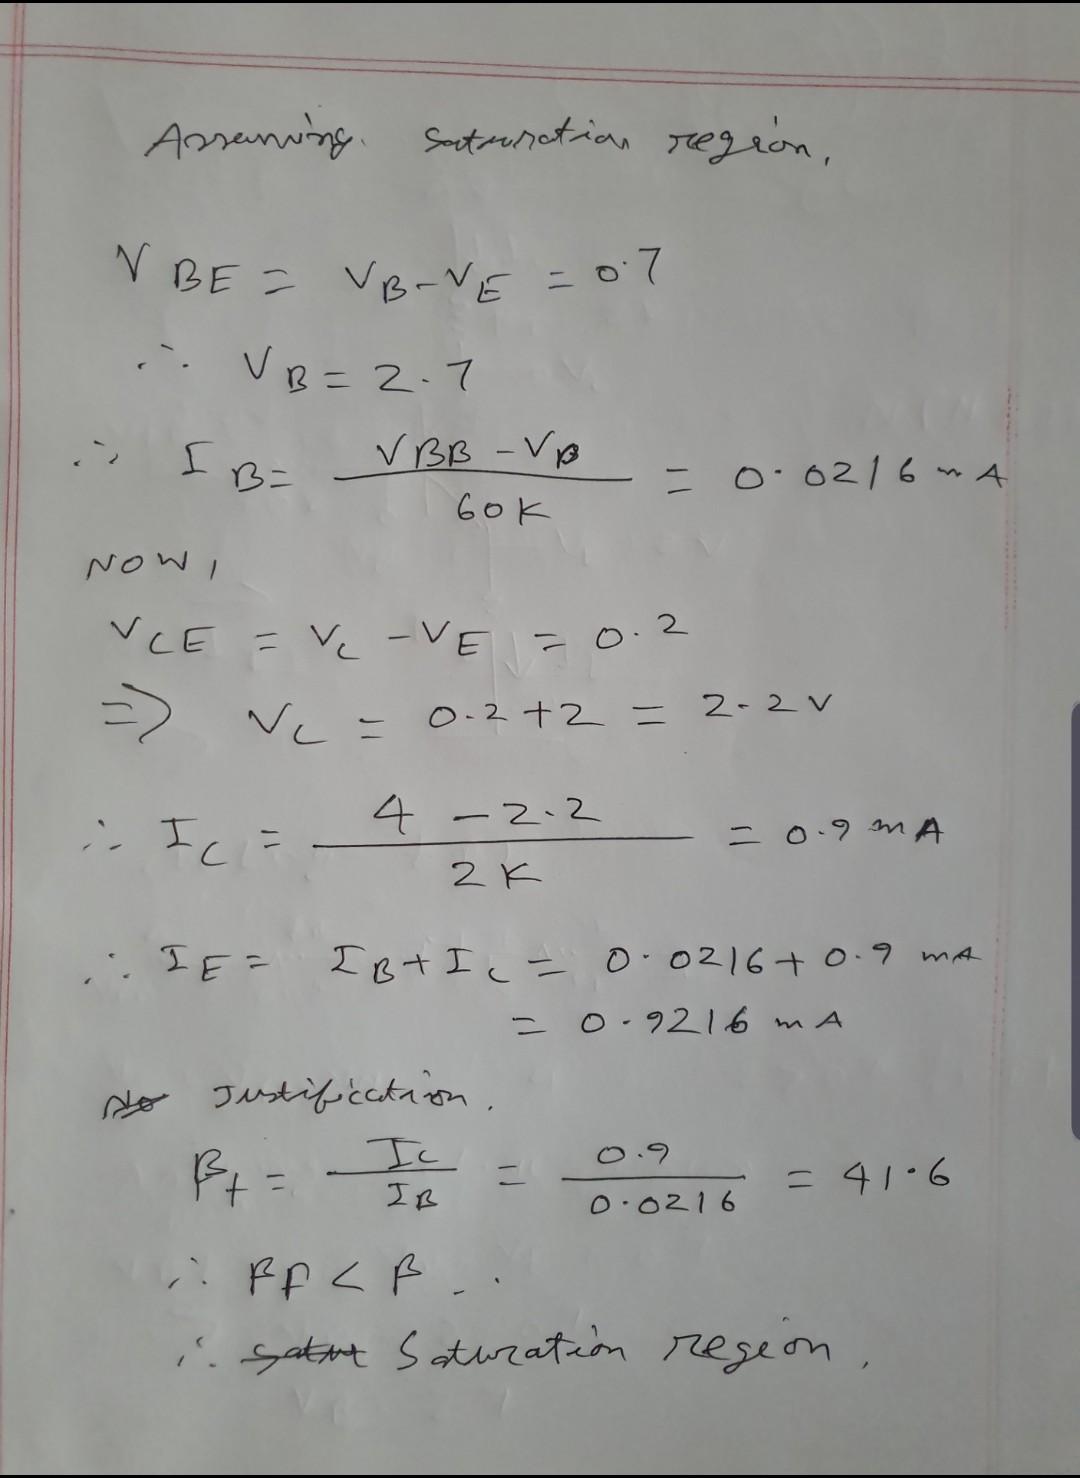 Assuming. Saturation region,
V BE = VB-VE = 0.7
∴ VB = 2.7
∴ IB = (VBB - VB) / 60K = 0.0216 mA
NOW,
VCE = VC - VE = 0.2
=> VC = 0.2+2 = 2.2V
∴ IC = (4 - 2.2) / 2K = 0.9 mA
∴ IE = IB+IC = 0.0216+0.9 mA
= 0.9216 mA
Justification.
βf = IC / IB = 0.9 / 0.0216 = 41.6
∴ βf < β
∴ Saturation region,